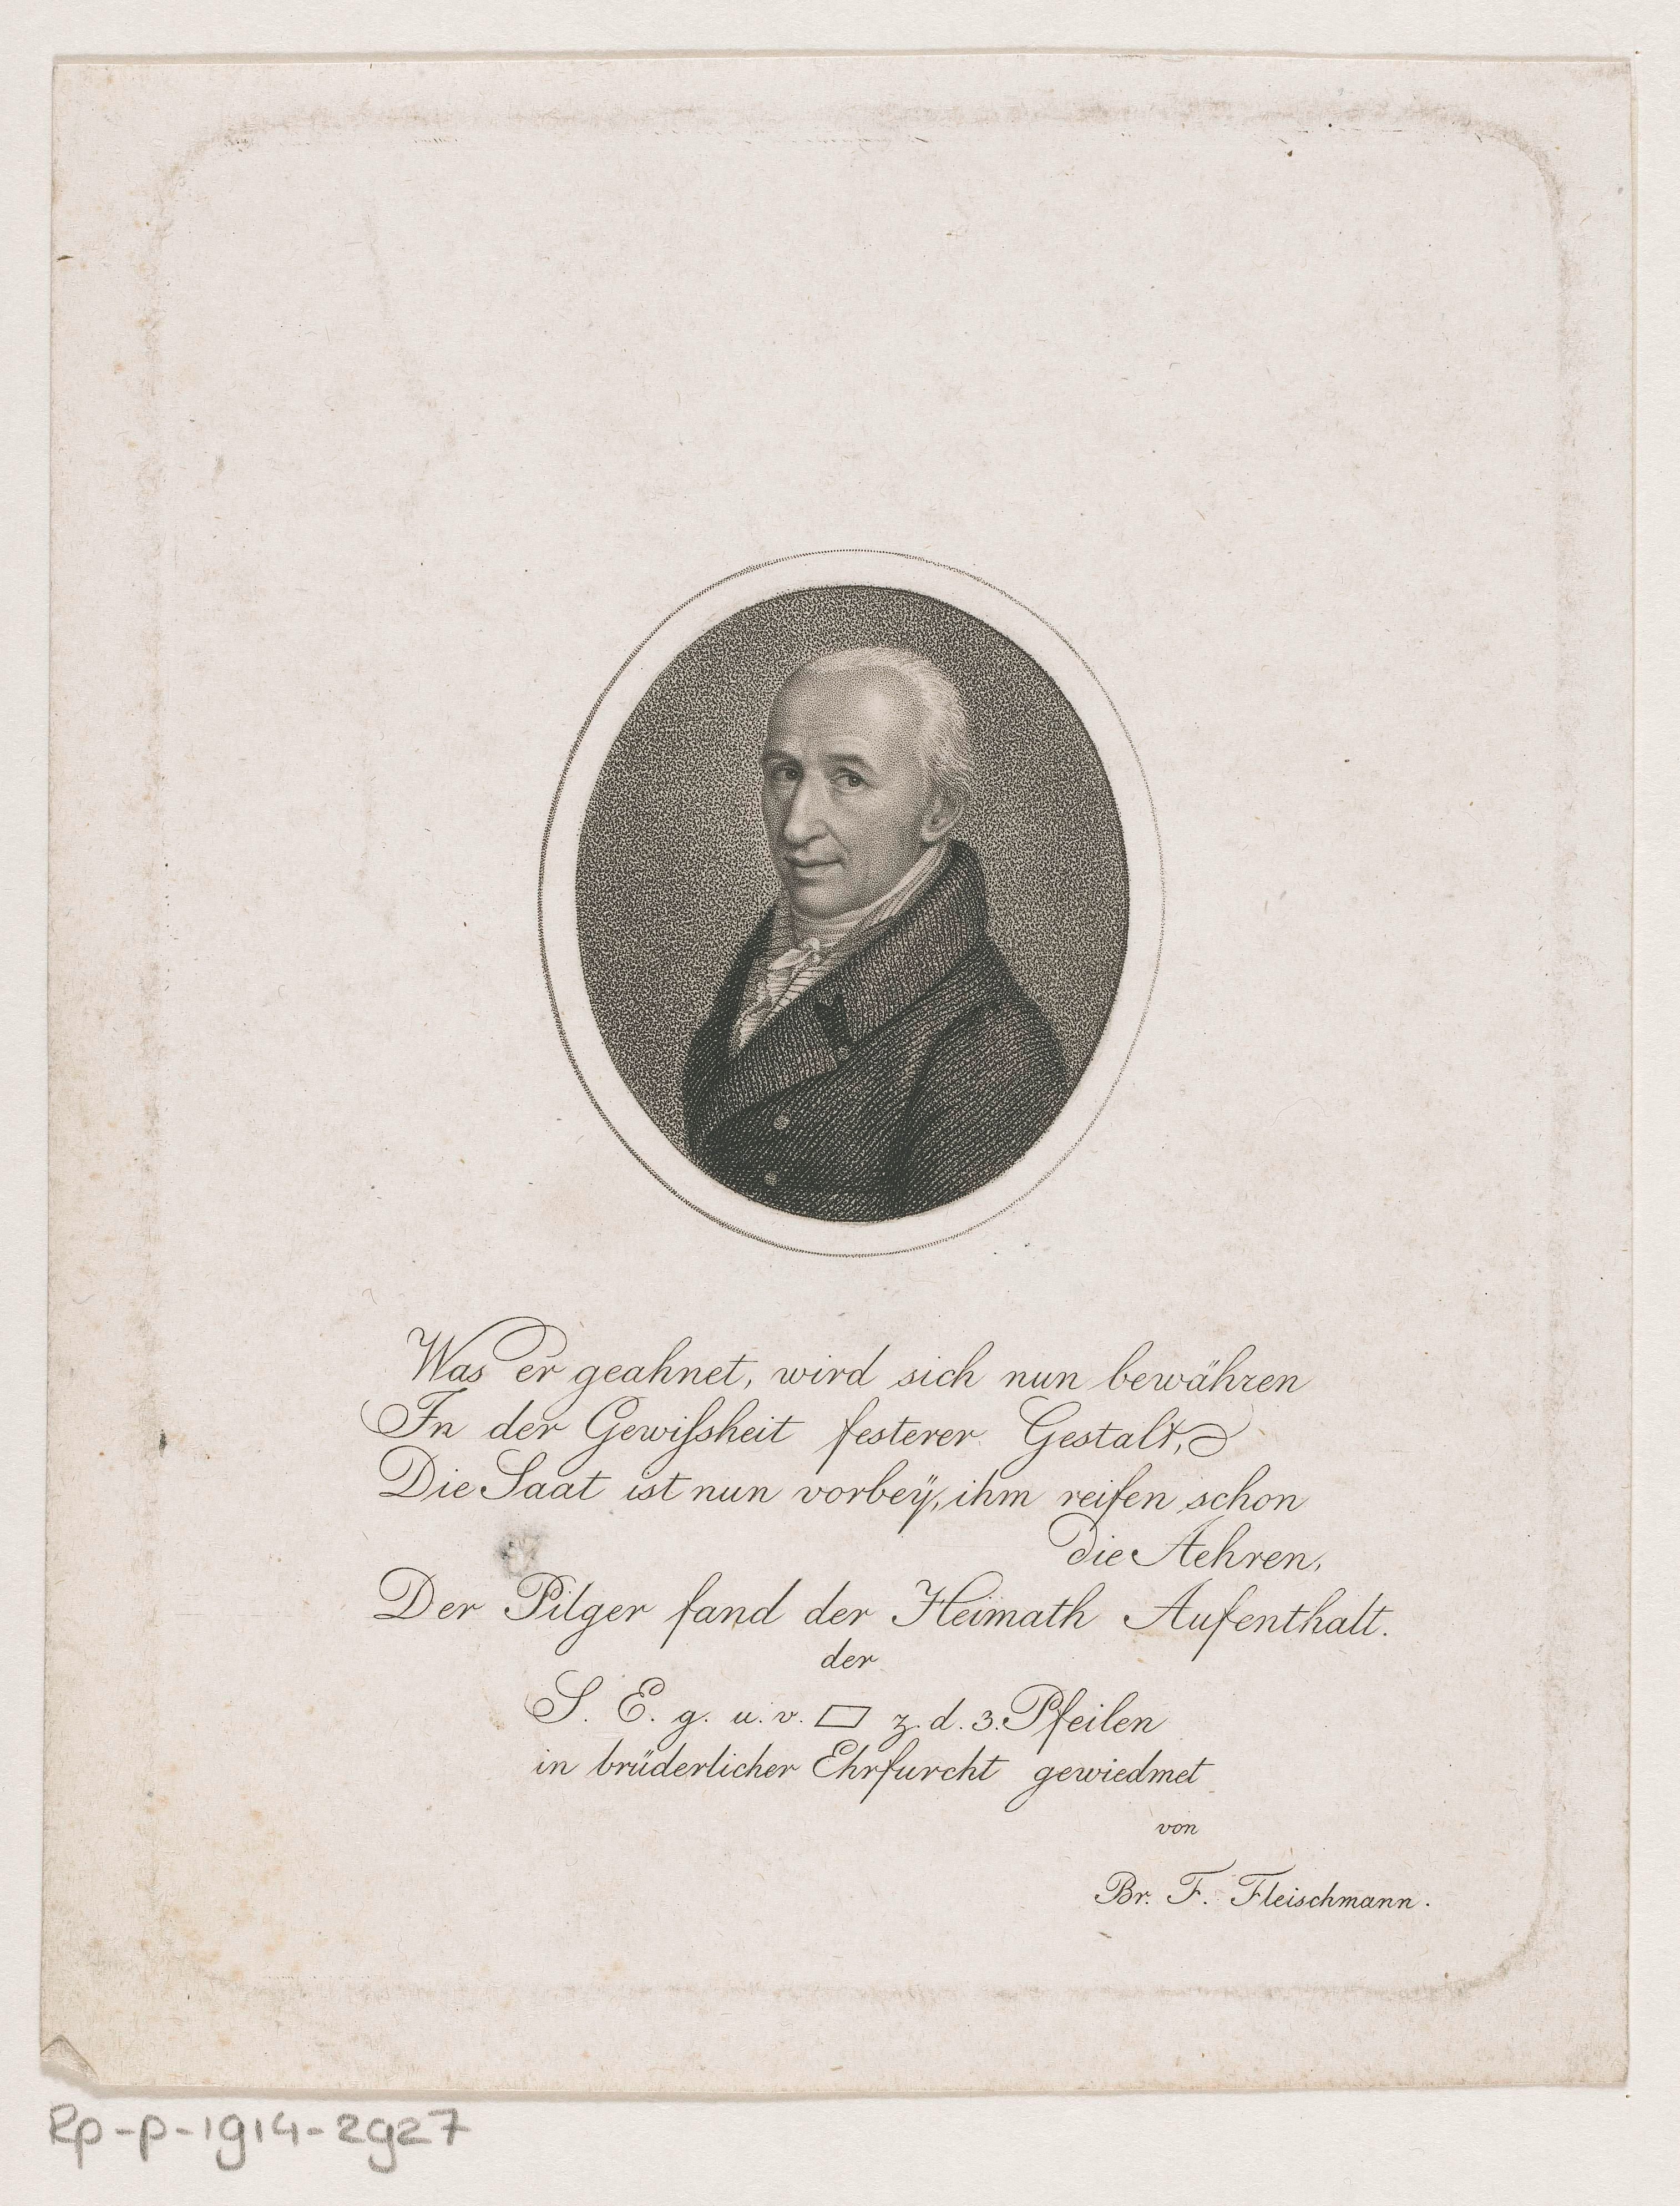 Was er geahnet, wird sich nun bewähren
In der Gewiſsheit festerer Gestalt,
Die Saat ist nun vorbeÿ, ihm reifen schon
die Aehren,
Der Pilger fand der Heimath Aufenthalt.
der
S. E. g. u. v. ▱ z. d. 3. Pfeilen
in brüderlicher Ehrfurcht gewiedmet
von
Br. F. Fleischmann.
Rp-p-1914-2927